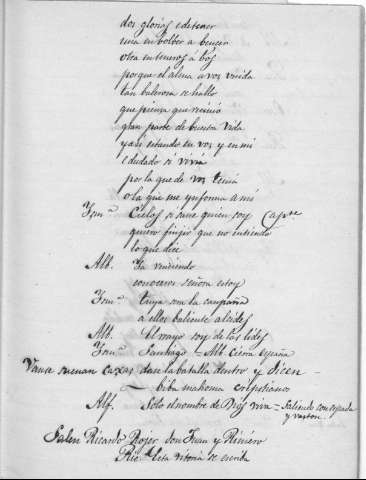 dos glorias e detener
una en bolber a bencer
otra en teneros á bós
porque el alma a vos unida
tan balerosa se halla
que piensa que recivió
gran parte de buestra vida
y asi estando en vos y en mi
e dudado si vivia
por la que de vos tenia
o la que me ynforma a mi
Ysm.ª Cielos si save quien soy (apte
quiero finjir que no entiendo
lo que dice
Alb. Ya venciendo
conoceros señora estoy
Ysm.ª tuya son la campaña
a ellos baliente alcides
Alb. El mayo soy de las lides
Ysm.ª Santiago = Alb cierra españa
Vanse suenan caxas dase la batalla dentro y dicen -
- biba mahoma cristianos
Alf. Solo el nombre de Dios viva = Saliendo con espada
y vaston
Salen Ricardo Rojer don Juan y Reinero
Ric.do Esta vitoria se escriba